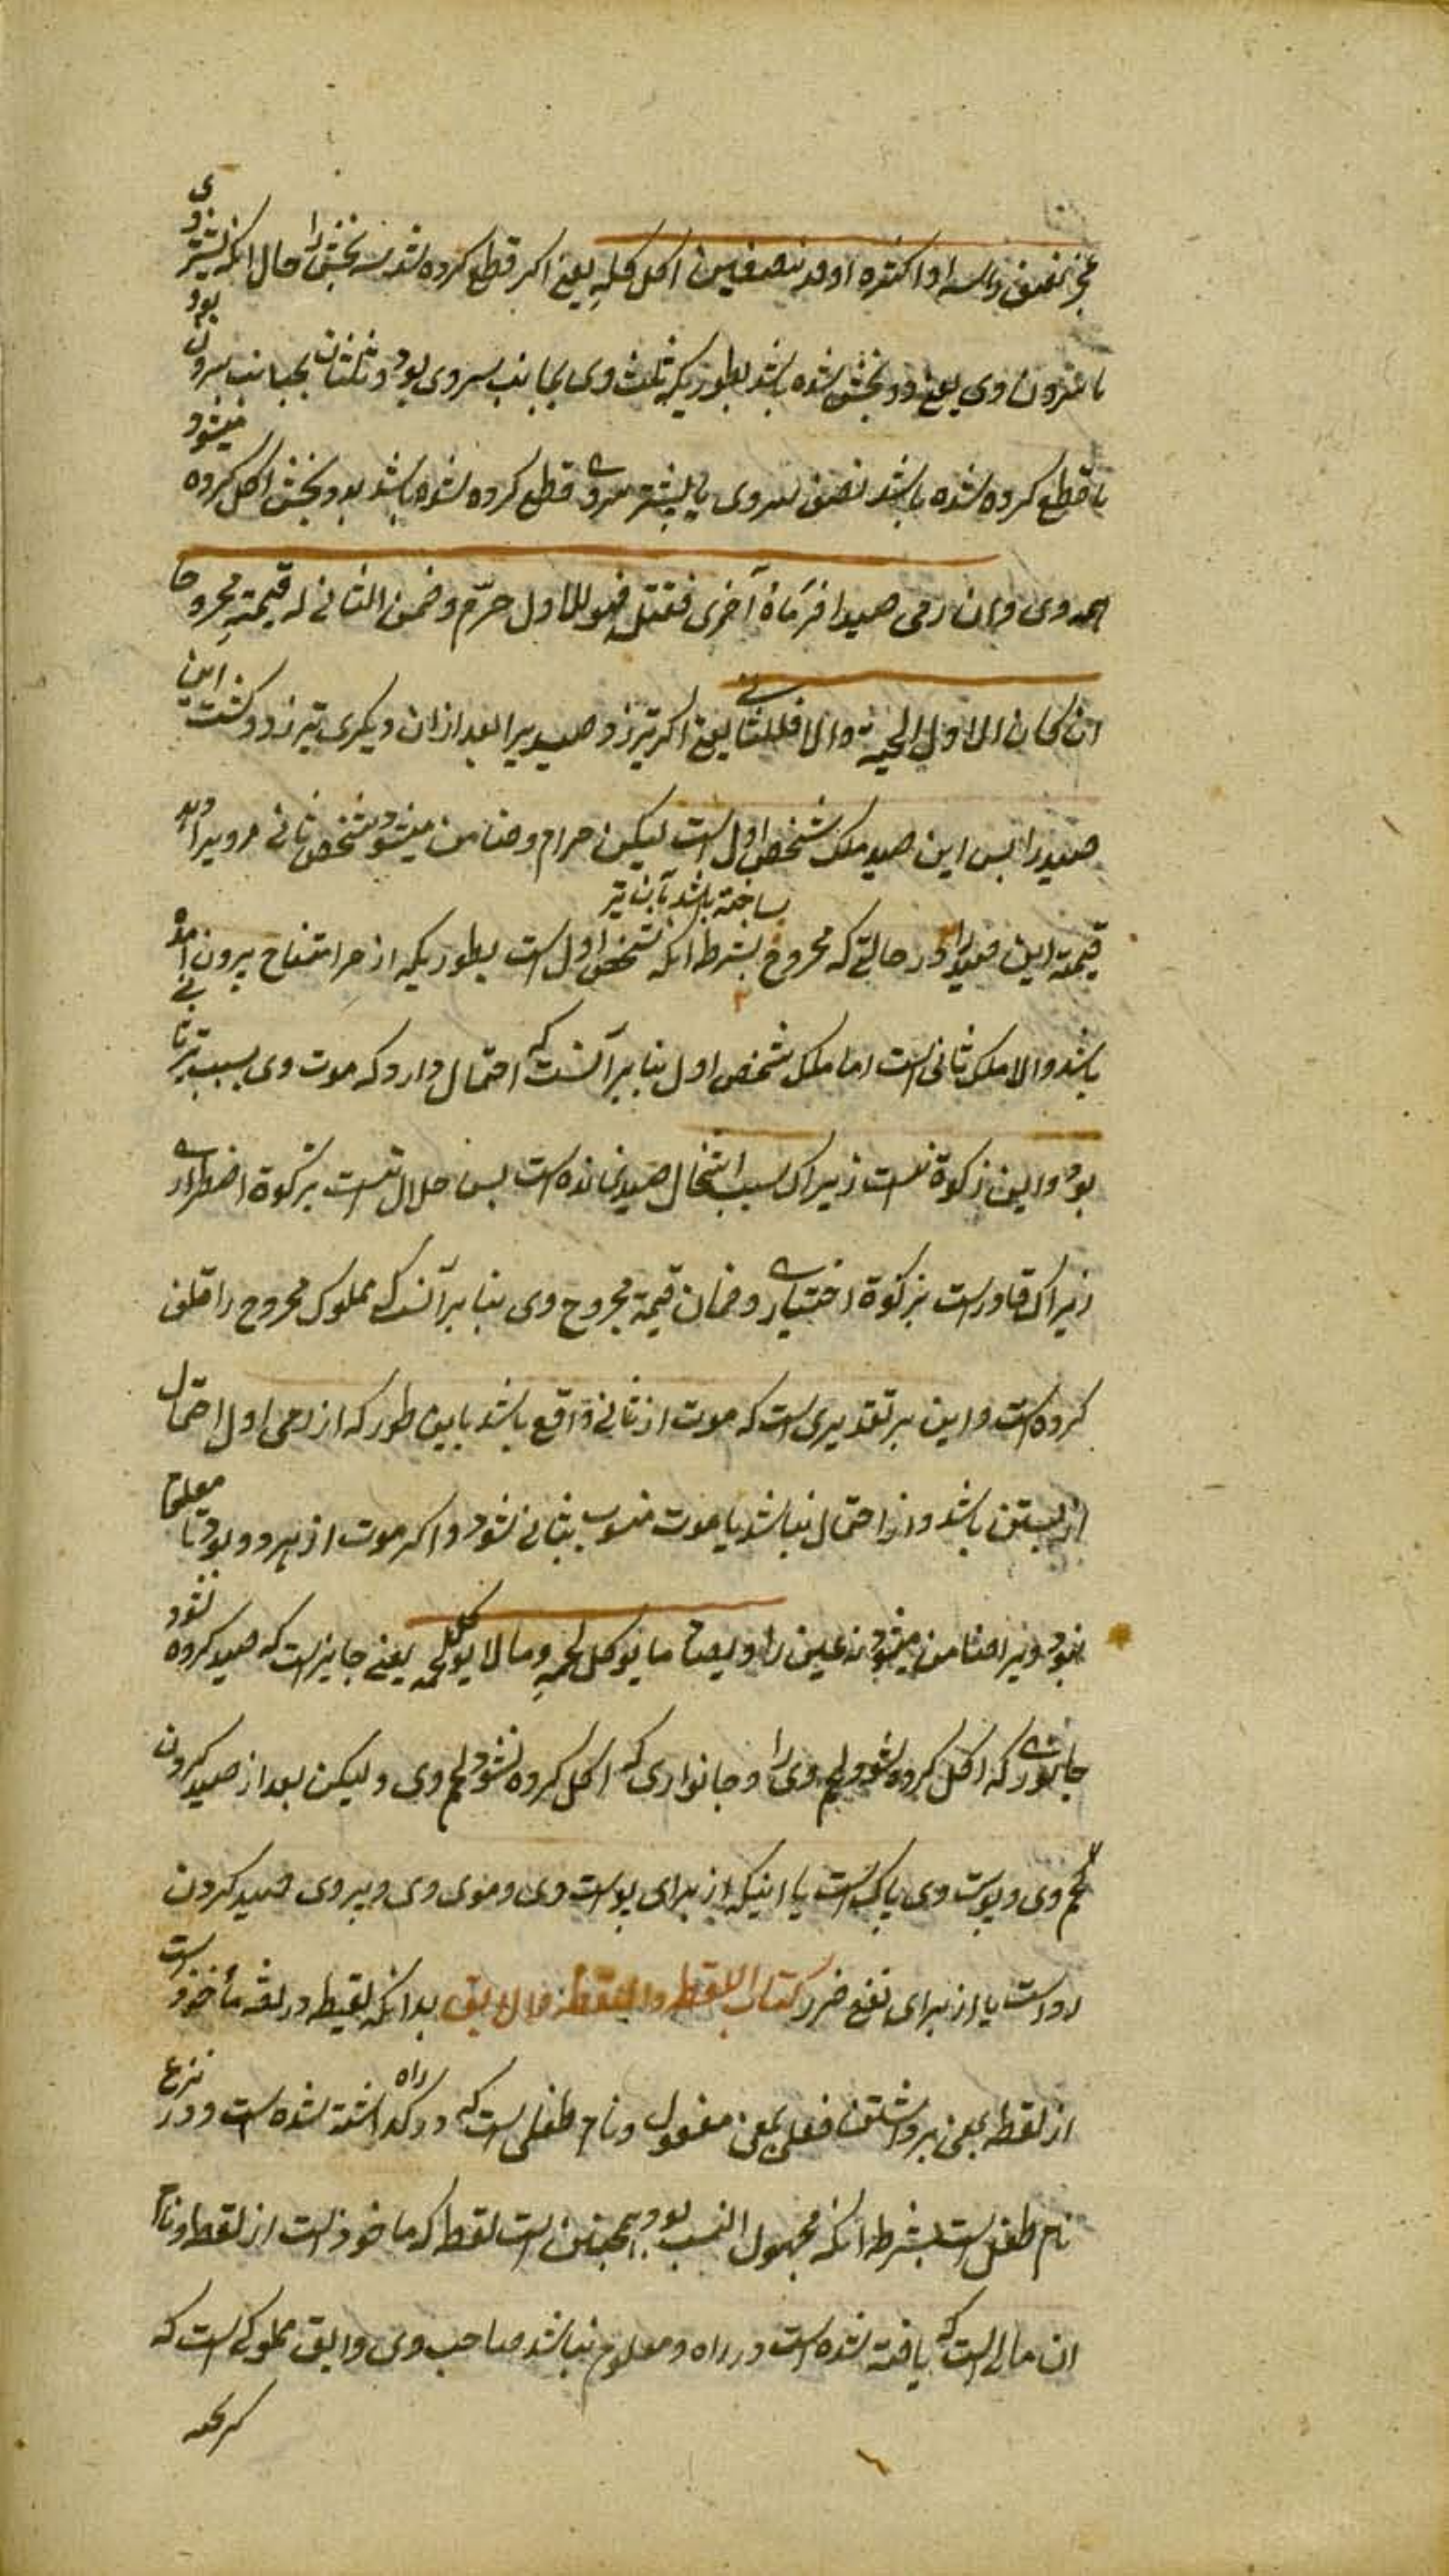 عجز نصف راسه او اکثره او قد بنصفین اکل کله یعنی اکر قطع کرده شد سه بخش را حال آنکه بیشتر وی
با سرون وی یعنی دو بخش شده باشد بطوریکه ثلث وی بجانب سر وی بود و ثلثان بجانب سرون بود
یا قطع کرده شده باشد نصف سر وی یا بیشتر سر وی قطع کرده شده باشد بدو بخش اکل کرده میشود
همه وی وان رمی صیدا فرماه آخری فقتله فهو للاول حرّم وضمن الثانی له قیمته مجروحا
ان کان الاول اثخنه والا فللثانی یعنی اکر تیر زد صید یرا بعد ازان دیکری تیر زد و کشت این
صید را بس این صید ملک شخص اول است لیکن حرام و ضامن میشود شخص ثانی مرویرا
قیمة این صید را در حالتی که مجروح بشرط آنکه شخص اول است بطوریکه از حر امتناع برون آمده
ساخته باشد بآن تیر
باشد والا ملک ثانی است اما ملک شخص اول بنا برآنست که احتمال دارد که موت وی بسبب تیر ثانی
بود و این ذکوة نیست زیراک بسبب اثخان صید نمانده است بس حلال نیست بذکوة اضطراری
زیراک قادر است بذکوة اختیاری و ضمان قیمة مجروح وی بنا برآنست که مملوک مجروح را تلف
کرده است و این بر تقدیری است که موت از ثانی واقع باشد باین طور که از رمی اول احتمال
از بستن باشد و از احتمال نباشد یا موت منسوب بثانی شود و اکر موت از هر دو بود یا معلوم
نبود ویرا ضامن میشود نه عین را ویصاد ما یوکل لحمه وما لا یوکل لحمه یعنی جایز است که صید کرده شود
جانوری که اکل کرده شود لحم وی را و جانواری که اکل کرده نشود لحم وی ولیکن بعد از صید کردن
لحم وی و پوست وی پاک است یا اینکه از برای پوست وی و موی وی و پر وی صید کردن
رواست یا از برای دفع ضرر کتاب اللقیط واللقطة والآبق بدانکه لقیط در لغة مأخوذ است
از لقطه بمعنی برداشتن فعیل بمعنی مفعول و نام طفلی است که در راه کذاشته شده است و در شرع
نام طفل است بشرط آنکه مجهول النسب بود و همچنین است لقطه که ماخوذ است از لقط و نام
ان مالی است که یافته شده است در راه و معلوم نباشد صاحب وی و آبق مملوکی است که
کریخته